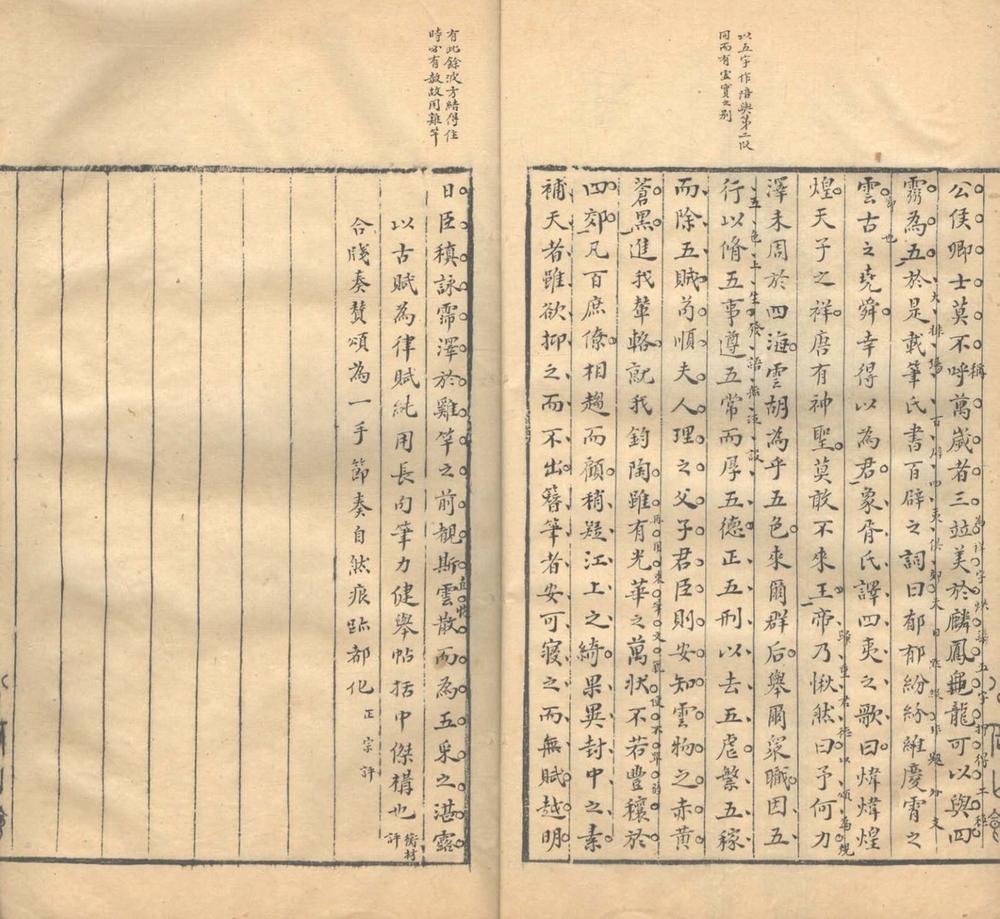 以五字作陪與第二段
同而有虛實之別
公侯卿士莫不呼萬歲者三竝美於麟鳳龜龍可以與四
靈為五於是載筆氏書百辟之詞曰郁郁紛紛維慶霄之
雲古之堯舜幸得以為君象胥氏譯四夷之歌曰煒煒煌
煌天子之祥唐有神聖莫敢不來王帝乃愀然曰予何力
澤未周於四海雲胡為乎五色來爾群后舉爾眾職因五
五色上生發語無泛設
行以脩五事遵五常而厚五德正五刑以去五虐繁五稼
而除五賊茍順夫人理之父子君臣則安知雲物之赤黃
蒼黑進我輦輅就我鈞陶雖有光華之萬狀不若豐穰於
四郊凡百庶僚相趨而顧稍疑江上之綺果異封中之素
補天者雖欲抑之而不出簪筆者安可寢之而無賦越明
有此餘波方結得住
時必有赦故用雞竿
日臣稹詠霈澤於雞竿之前覩斯雲散而為五采之湛露
以古賦為律賦純用長句筆力健舉帖括中傑構也 衡村評
合牋奏贊頌為一手節奏自然痕跡都化 正宗評